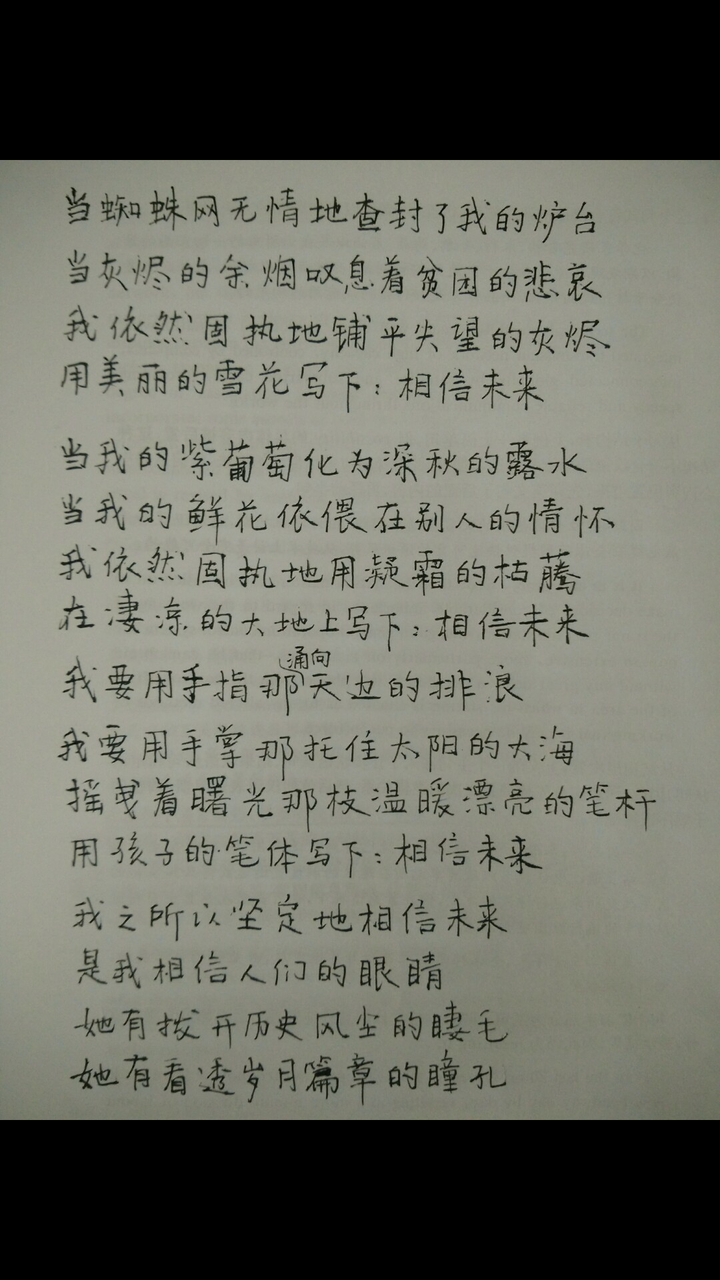 当蜘蛛网无情地查封了我的炉台
当灰烬的余烟叹息着贫困的悲哀
我依然固执地铺平失望的灰烬
用美丽的雪花写下：相信未来
当我的紫葡萄化为深秋的露水
当我的鲜花依偎在别人的情怀
我依然固执地用凝霜的枯藤
在凄凉的大地上写下：相信未来
我要用手指那涌向天边的排浪
我要用手掌那托住太阳的大海
摇曳着曙光那枝温暖漂亮的笔杆
用孩子的笔体写下：相信未来
我之所以坚定地相信未来
是我相信人们的眼睛
她有拨开历史风尘的睫毛
她有看透岁月篇章的瞳孔